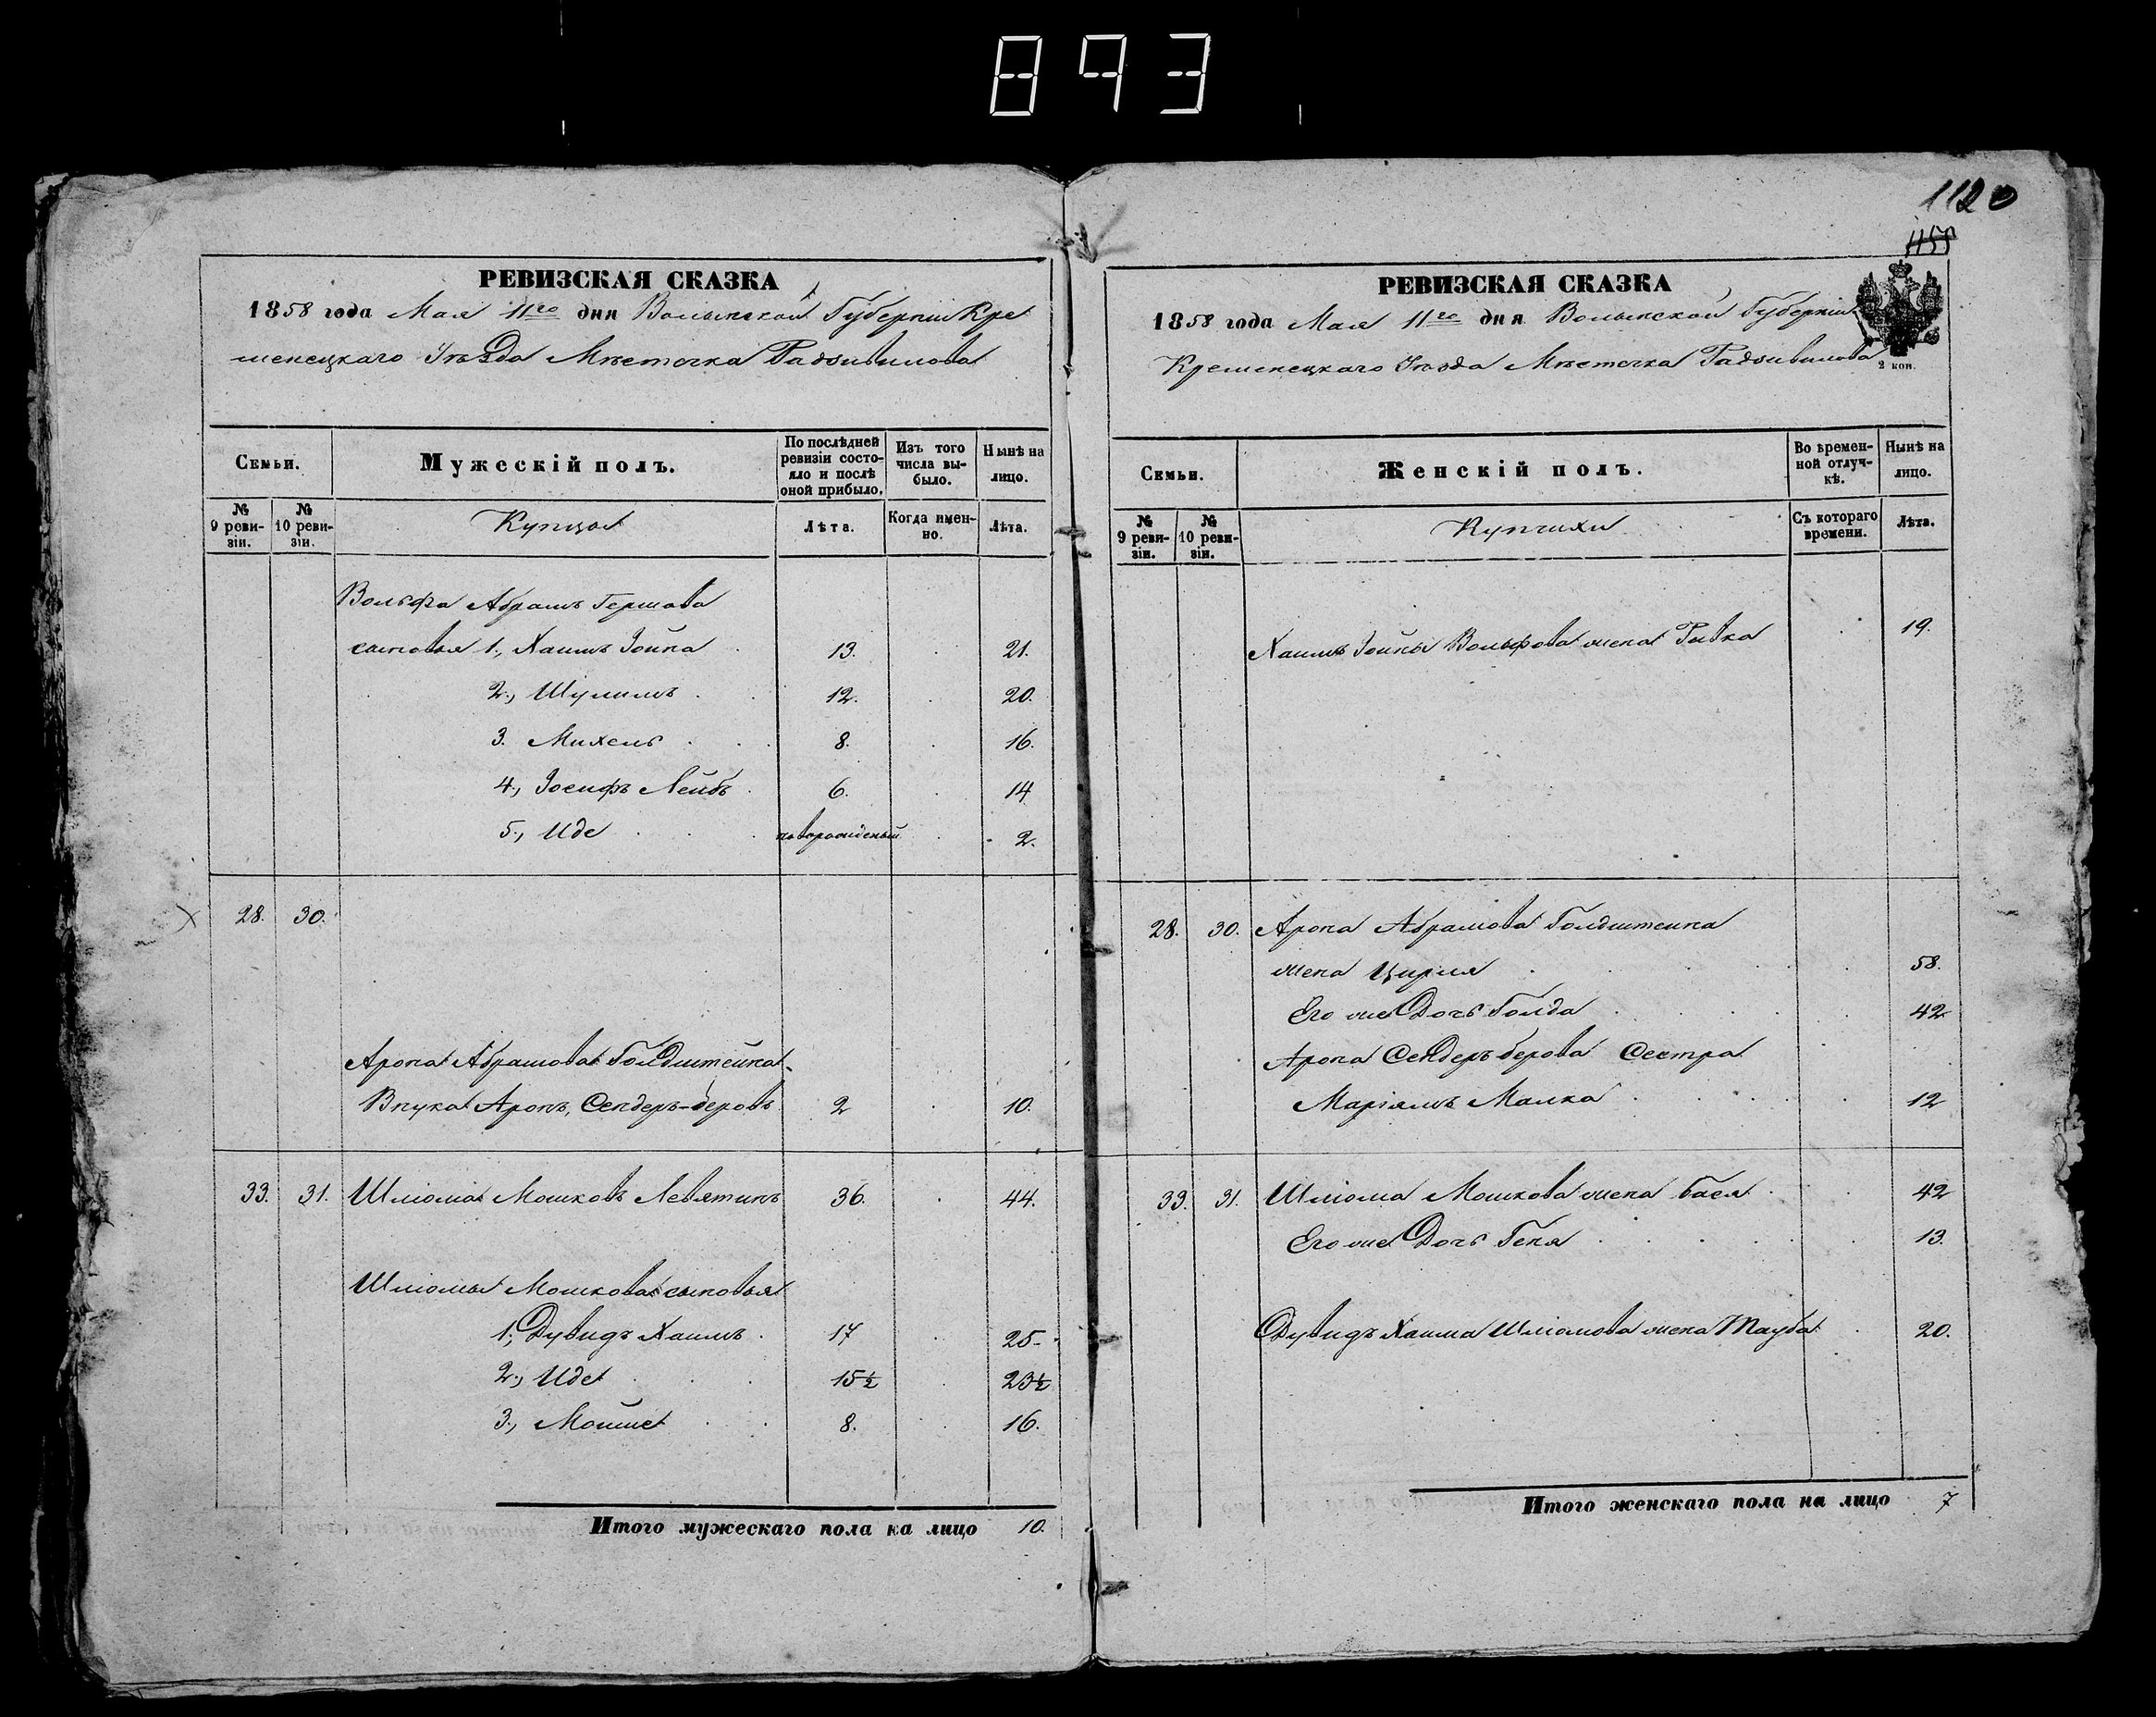 893
1120
455
РЕВИЗСКАЯ СКАЗКА
1858 года Мая 11го дня Волынской Губерніи Кре
менецкаго Уѣзда Мѣстечка Радзивилова
Семьи.
Мужескій полъ.
По послѣдней ревизіи состояло и послѣ оной прибыло.
Изъ того числа выбыло.
Нынѣ на лицо.
№ 9 ревизіи.
№ 10 ревизіи.
Купцы
Лѣта.
Когда именно.
Лѣта.
Вольфа Абрамъ Гершова
сыновья 1., Хаимъ Іойна 13. 21.
2., Шулимъ 12. 20.
3. Михель 8. 16.
4., Іосифъ Лейбъ 6. 14
5., Иде новорожденый 2.
28. 30.
Арона Абрамова Голдштейна
Внукъ Аронъ, Сендеръ-беровъ 2 10.
33. 31. Шліома Мошковъ Левятинъ 36. 44.
Шліомы Мошкова сыновья
1., Дувидъ Хаимъ 17 25
2., Иде 15½ 23½
3., Мойше 8. 16.
Итого мужескаго пола на лицо 10.
РЕВИЗСКАЯ СКАЗКА
1858 года Мая 11го дня Волынской Губерніи
Кременецкаго Уѣзда Мѣстечка Радзивилова
2 коп.
Семьи.
Женскій полъ.
Во временной отлучкѣ.
Нынѣ на лицо.
№ 9 ревизіи.
№ 10 ревизіи.
Купчихи
Съ котораго времени.
Лѣта.
Хаимъ Іойны Вольфова жена Ривка 19.
28. 30. Арона Абрамова Голдштейна
жена Цирля 58.
Его же Дочь Голда 42
Арона Сендеръ берова Сестра
Маріямъ Малка 12
33. 31. Шліома Мошкова жена Бася 42
Его же Дочь Геня 13.
Дувидъ Хаима Шліомова жена Тауба 20.
Итого женскаго пола на лицо 7